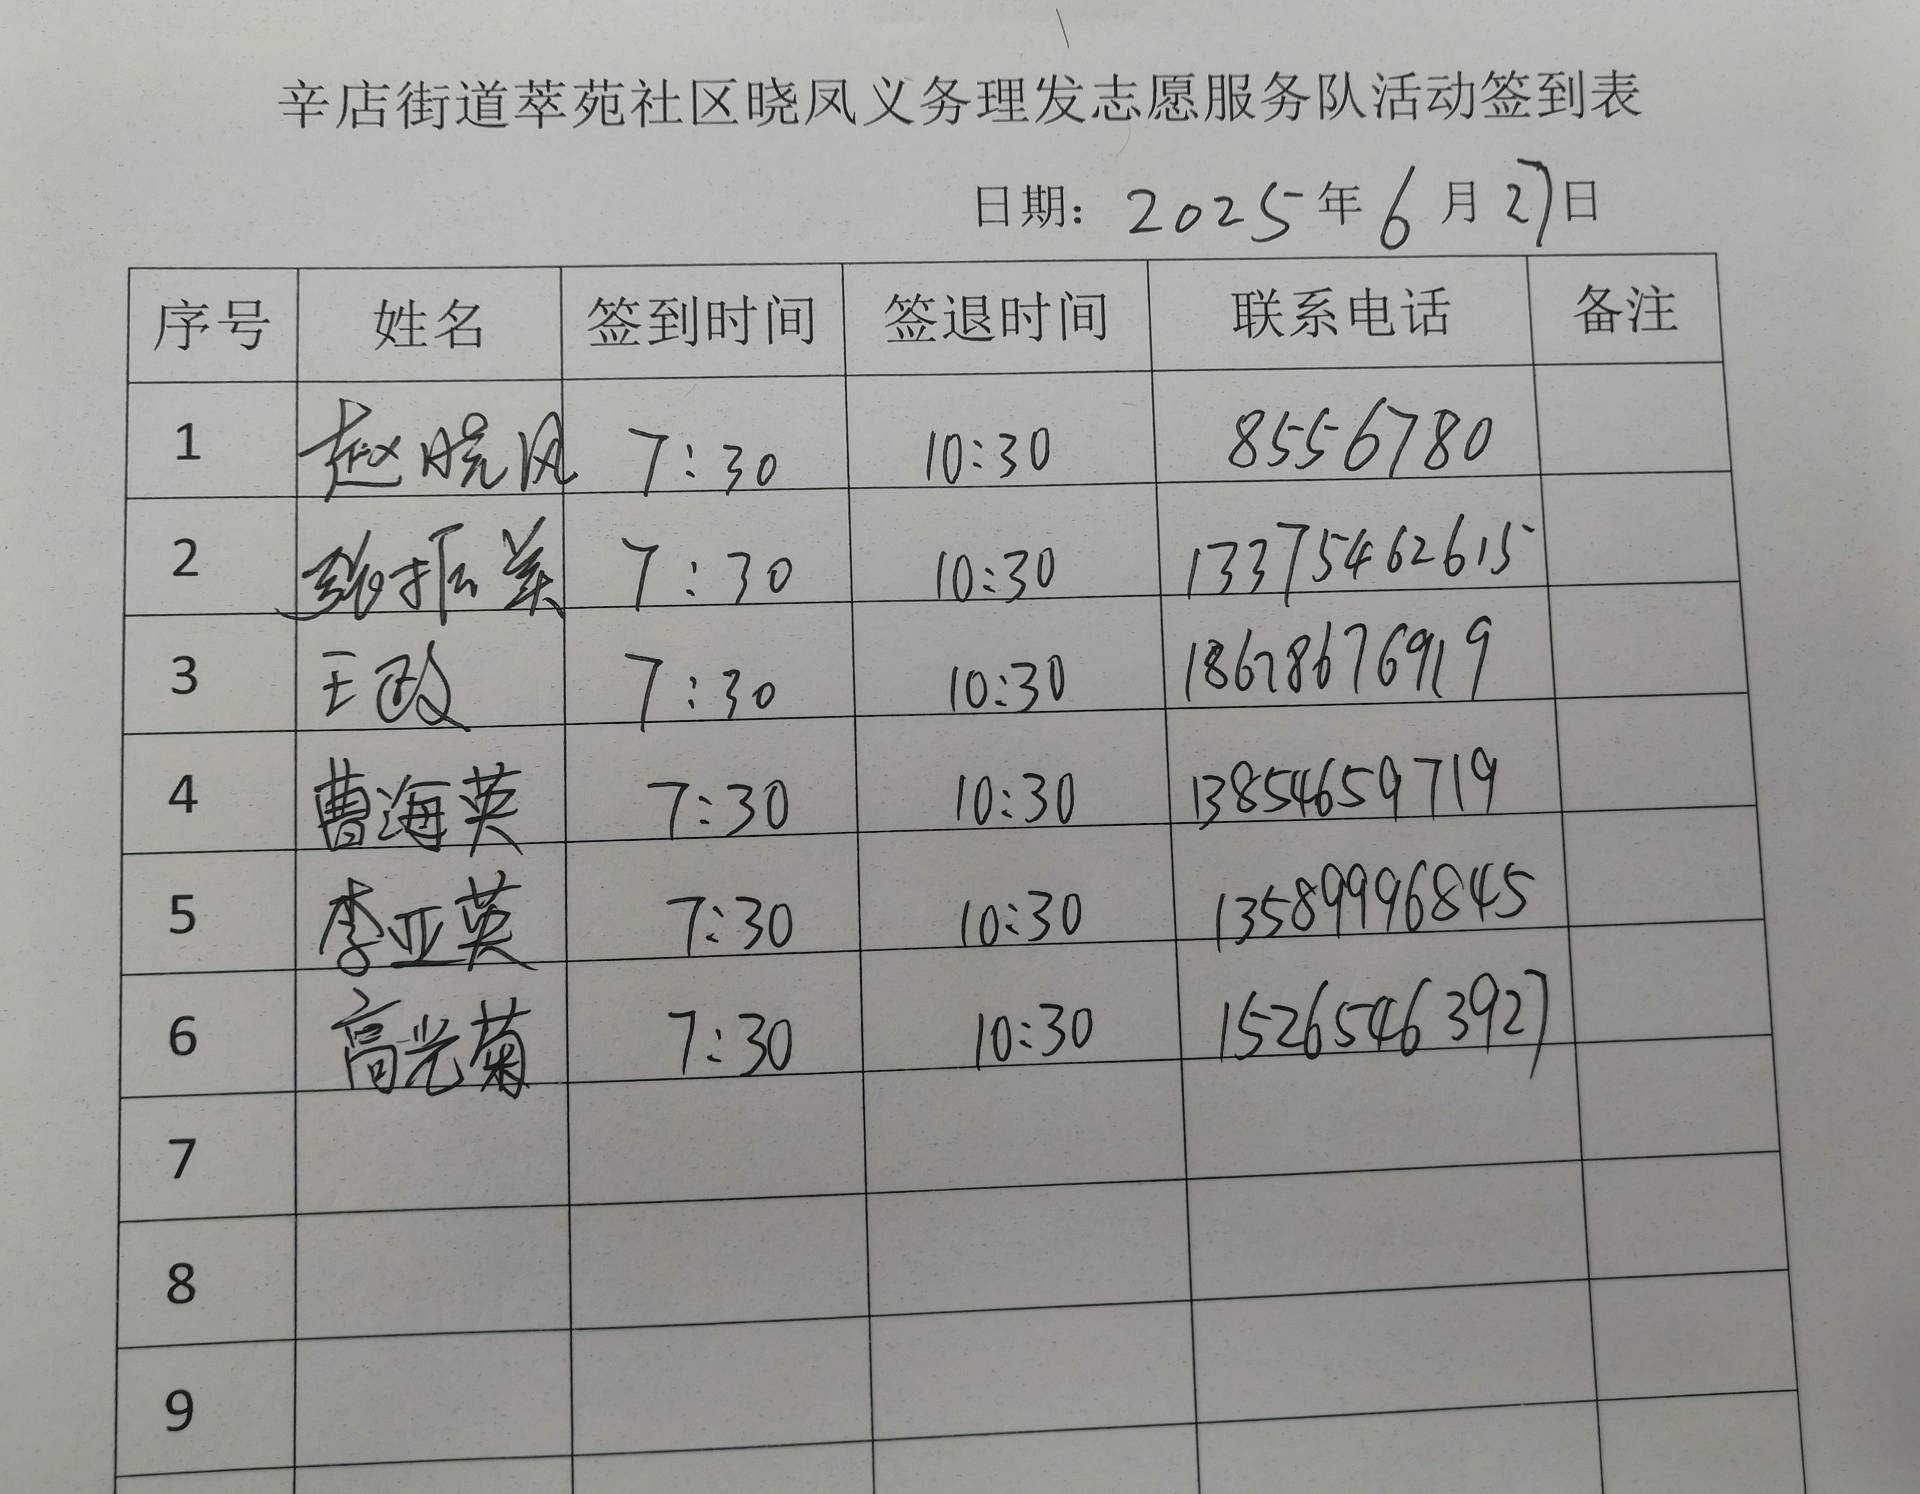 辛店街道萃苑社区晓凤义务理发志愿服务队活动签到表
日期：2025年6月27日
序号 姓名 签到时间 签退时间 联系电话 备注
1 赵晓凤 7:30 10:30 8556780
2 张振美 7:30 10:30 13375462615
3 王政 7:30 10:30 18678676919
4 曹海英 7:30 10:30 13854659719
5 李亚英 7:30 10:30 13589996845
6 高光菊 7:30 10:30 15265463927
7
8
9